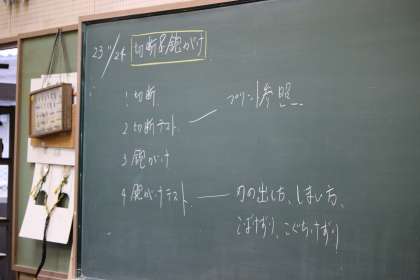 23 11/24 切断&鉋がけ
1 切断
2 切断テスト — プリント参照
3 鉋がけ
4 鉋がけテスト — 刃の出し方、しまい方、
こばけずり、こぐちけずり